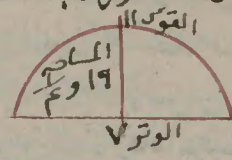 القوس ١١
المساحة
١٩ و ١/٤
الوتر ٧